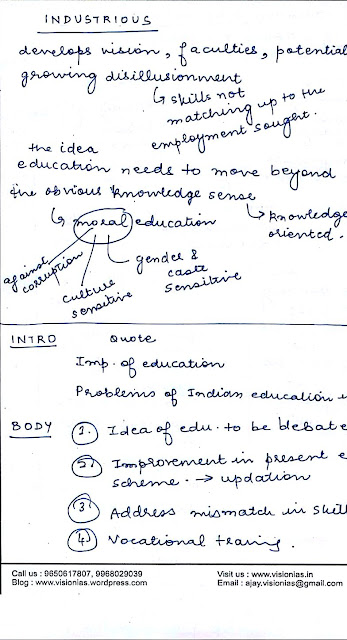 INDUSTRIOUS
develops vision, faculties, potential
growing disillusionment
↳ skills not
matching up to the
employment sought.
the idea
education needs to move beyond
the obvious knowledge sense
↳ moral education
↳ knowledge
oriented.
against
corruption
culture
sensitive
gender &
caste
sensitive
INTRO Quote
Imp. of education
Problems of Indian education
BODY 1. Idea of edu. to be debate
2. Improvement in present e
scheme. → updation
3. Address mismatch in skill
4. Vocational traning.
Call us : 9650617807, 9968029039 Visit us : www.visionias.in
Blog : www.visionias.wordpress.com Email : ajay.visionias@gmail.com